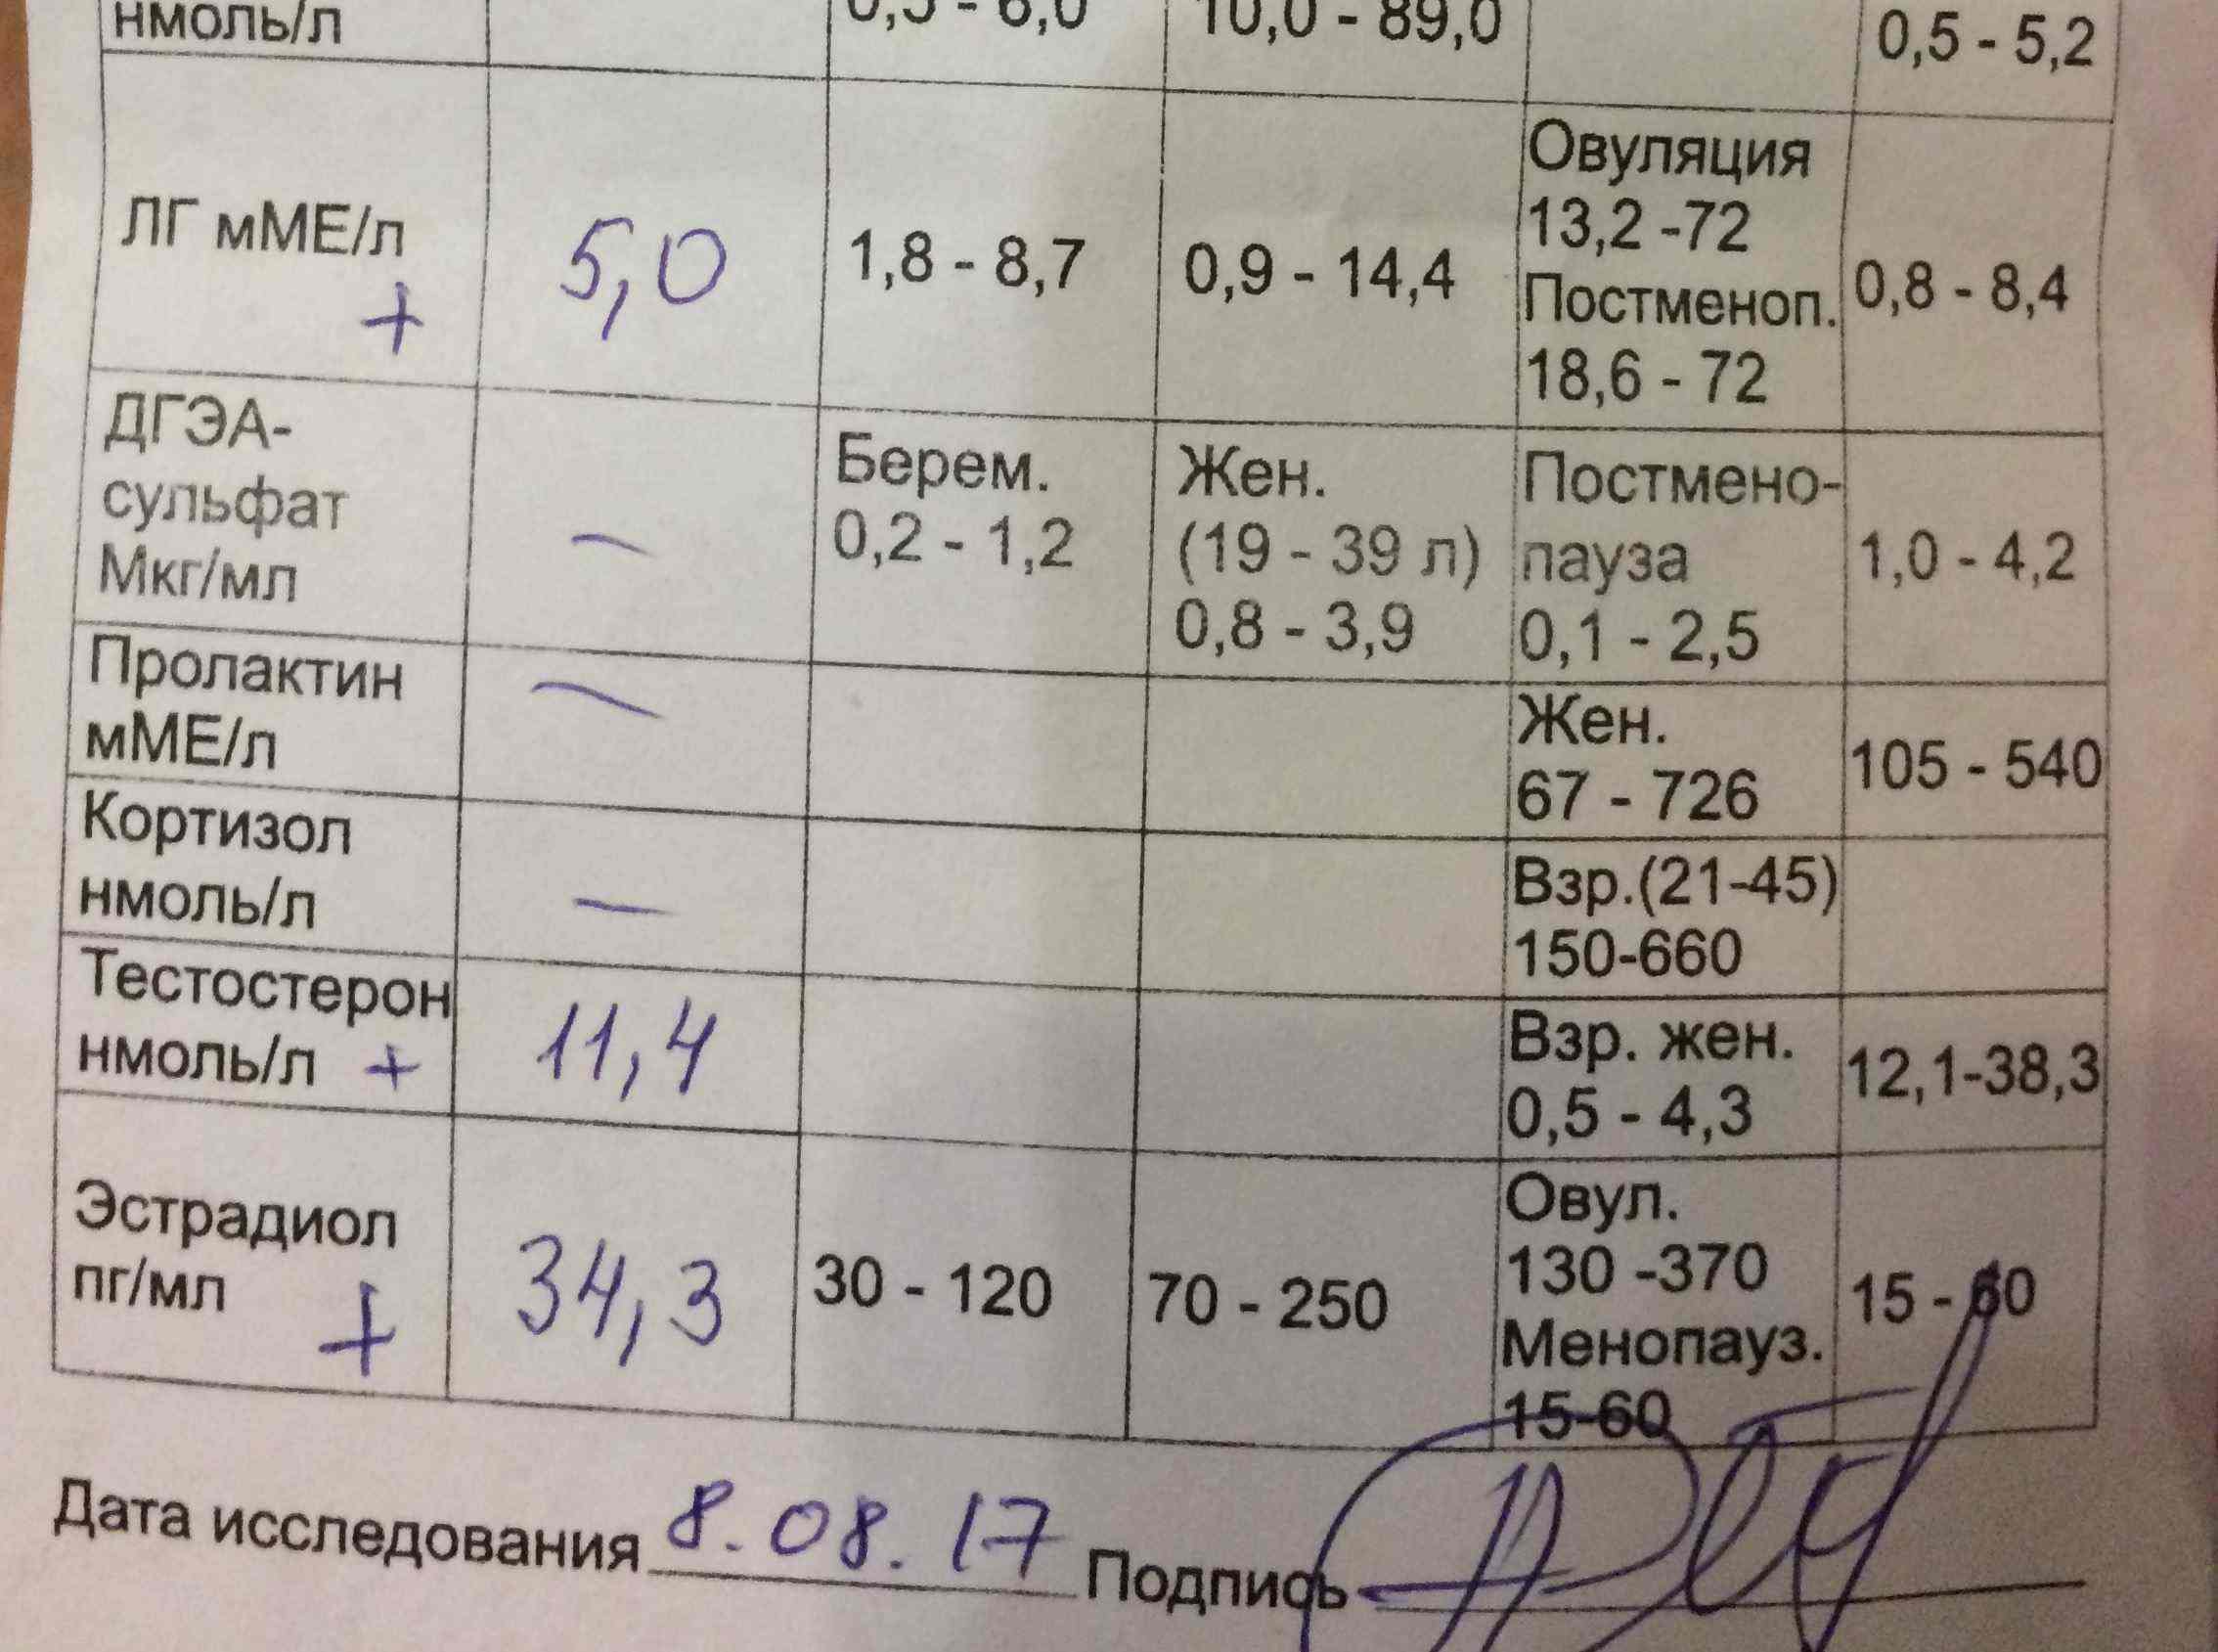 нмоль/л 0,5 - 6,0 10,0 - 89,0 0,5 - 5,2
ЛГ мМЕ/л + 5,0 1,8 - 8,7 0,9 - 14,4 Овуляция
13,2 -72
Постменоп.
18,6 - 72
0,8 - 8,4
ДГЭА-
сульфат
Мкг/мл
–
Берем.
0,2 - 1,2
Жен.
(19 - 39 л)
0,8 - 3,9
Постмено-
пауза
0,1 - 2,5
1,0 - 4,2
Пролактин
мМЕ/л
–
Жен.
67 - 726
105 - 540
Кортизол
нмоль/л
–
Взр.(21-45)
150-660
Тестостерон
нмоль/л +
11,4
Взр. жен.
0,5 - 4,3
12,1-38,3
Эстрадиол
пг/мл +
34,3
30 - 120
70 - 250
Овул.
130 -370
Менопауз.
15-60
15 - 60
Дата исследования 8.08.17 Подпись